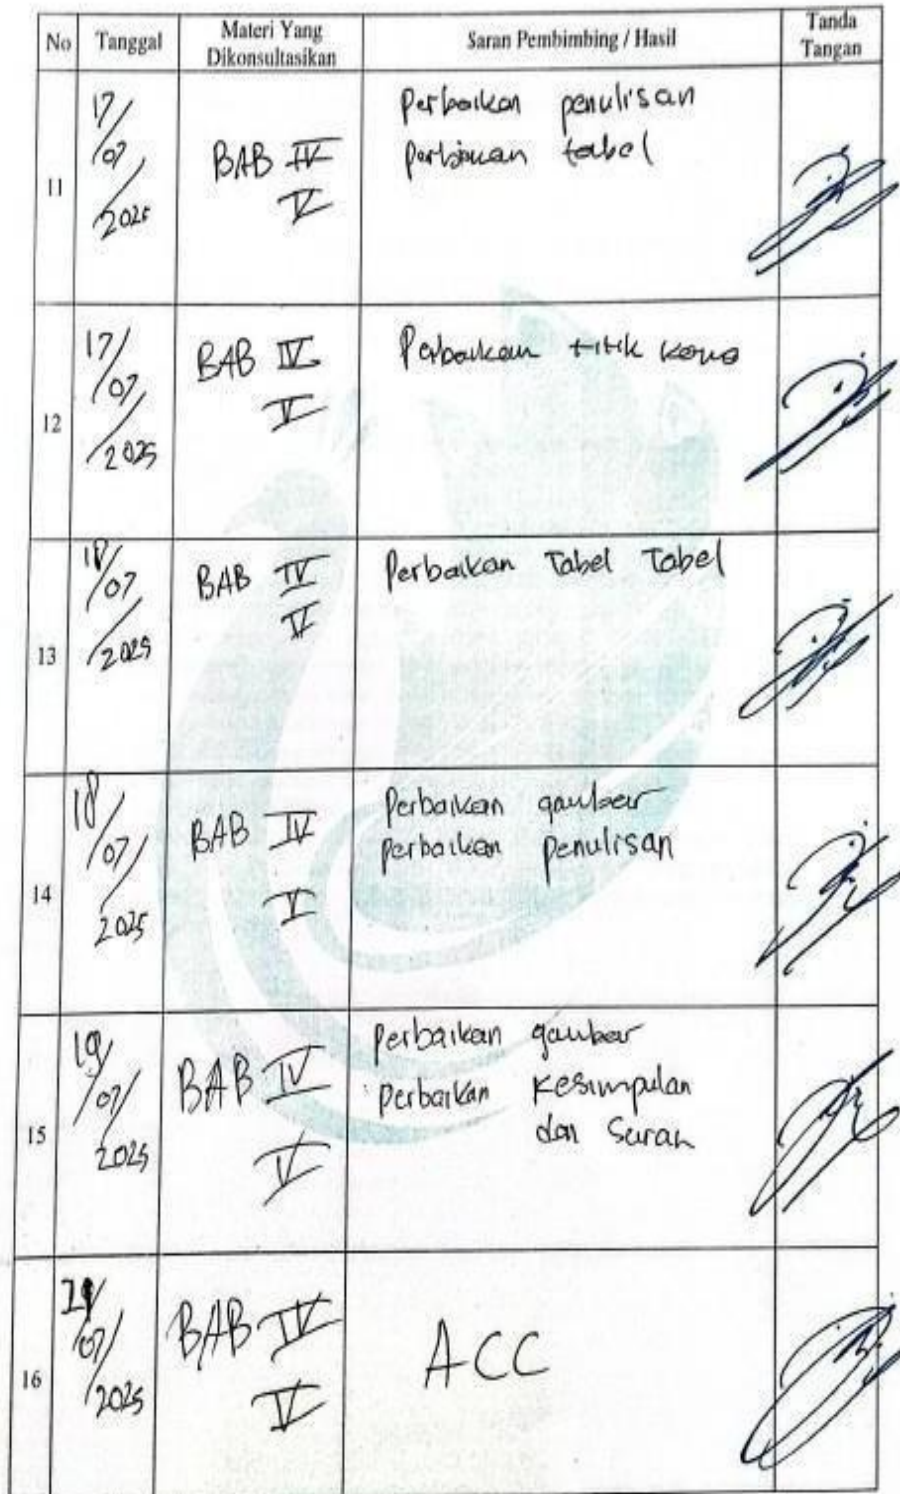 No Tanggal Materi Yang Dikonsultasikan Saran Pembimbing / Hasil Tanda Tangan
11 17/07/2025 BAB IV Perbaikan penulisan
V Perbaikan tabel
12 17/07/2025 BAB IV Perbaikan titik koma
V
13 18/07/2025 BAB IV Perbaikan Tabel Tabel
V
14 18/07/2025 BAB IV Perbaikan gambar
V perbaikan penulisan
15 19/07/2025 BAB IV Perbaikan gambar
V Perbaikan Kesimpulan
dan Saran
16 /07/2025 BAB IV ACC
V